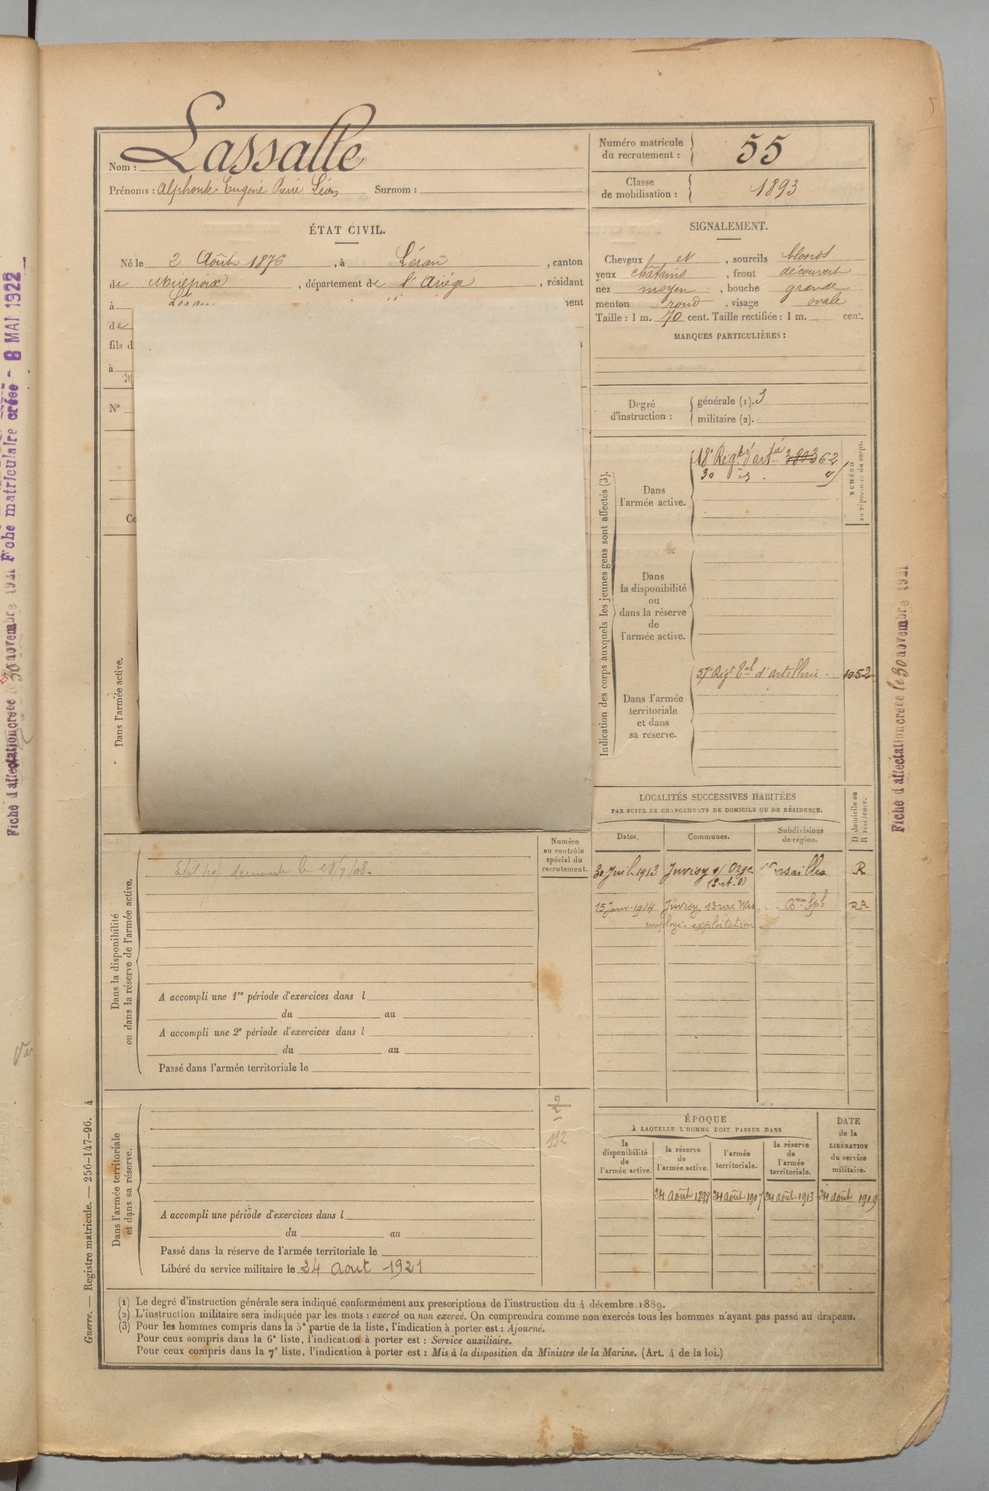 Fiche d'affectation créée le 30 novembre 1921 Fiche matriculaire créée - 8 MAI 1922
Nom : Lassalle
Prénoms : Alphonse Eugène René Léon Surnom :
Numéro matricule
du recrutement : 55
Classe
de mobilisation : 1893
ÉTAT CIVIL.
Né le 2 Août 1876, à Léran, canton
de Mirepoix, département de l'Ariège, résidant
à
de
fils d
à
N°
SIGNALEMENT.
Cheveux et, sourcils blonds
yeux châtains, front découvert
nez moyen, bouche grande
menton rond, visage ovale
Taille : 1 m. 70 cent. Taille rectifiée : 1 m. cent.
MARQUES PARTICULIÈRES :
Degré
d'instruction :
générale (1). 3
militaire (2).
Indication des corps auxquels les jeunes gens sont affectés (3).
NUMÉRO
au répertoire du corps.
Dans
l'armée active.
18e Régt d'artie 3803 62
Dans
la disponibilité
ou
dans la réserve
de
l'armée active.
Dans l'armée
territoriale
et dans
sa réserve.
57 Régt d'artillerie 1052
Dans l'armée active.
LOCALITÉS SUCCESSIVES HABITÉES
PAR SUITE DE CHANGEMENTS DE DOMICILE OU DE RÉSIDENCE.
Dates. Communes. Subdivisions
de région.
D. domicile ou
R. résidence.
30 Juil 1913 Juvisy s/ Orge Versailles R
(S. et O)
15 Janv 1914 Juvisy 13 rue RA
employé exploitation
Dans la disponibilité
ou dans la réserve de l'armée active.
Numéro
au contrôle
spécial du
recrutement.
A accompli une 1re période d'exercices dans l
du au
A accompli une 2e période d'exercices dans l
du au
Passé dans l'armée territoriale le
Dans l'armée territoriale
et dans sa réserve.
112
A accompli une période d'exercices dans l
du au
Passé dans la réserve de l'armée territoriale le
Libéré du service militaire le 24 aout 1921
ÉPOQUE
À LAQUELLE L'HOMME DOIT PASSER DANS
DATE
de la
LIBÉRATION
du service
militaire.
la
disponibilité
de
l'armée active.
la réserve
de
l'armée active.
l'armée
territoriale.
la réserve
de
l'armée
territoriale.
24 août 1898 24 août 1907 24 août 1913 24 août 1919
(1) Le degré d'instruction générale sera indiqué conformément aux prescriptions de l'instruction du 4 décembre 1889.
(2) L'instruction militaire sera indiquée par les mots : exercé ou non exercé. On comprendra comme non exercés tous les hommes n'ayant pas passé au drapeau.
(3) Pour les hommes compris dans la 5e partie de la liste, l'indication à porter est : Ajourné.
Pour ceux compris dans la 6e liste, l'indication à porter est : Service auxiliaire.
Pour ceux compris dans la 7e liste, l'indication à porter est : Mis à la disposition du Ministre de la Marine. (Art. 4 de la loi.)
Guerre. — Registre matricule. — 256-147-96. 4
Fiche d'affectation créée le 30 novembre 1921